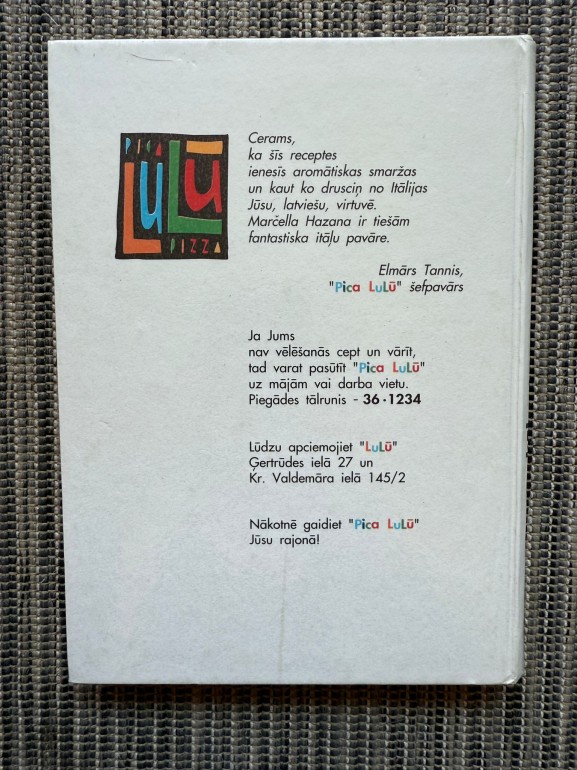 PICA
LuLū
PIZZA
Cerams,
ka šīs receptes
ienesīs aromātiskas smaržas
un kaut ko drusciņ no Itālijas
Jūsu, latviešu, virtuvē.
Marčella Hazana ir tiešām
fantastiska itāļu pavāre.
Elmārs Tannis,
"Pica LuLū" šefpavārs
Ja Jums
nav vēlēšanās cept un vārīt,
tad varat pasūtīt "Pica LuLū"
uz mājām vai darba vietu.
Piegādes tālrunis - 36·1234
Lūdzu apciemojiet "LuLū"
Ģertrūdes ielā 27 un
Kr. Valdemāra ielā 145/2
Nākotnē gaidiet "Pica LuLū"
Jūsu rajonā!